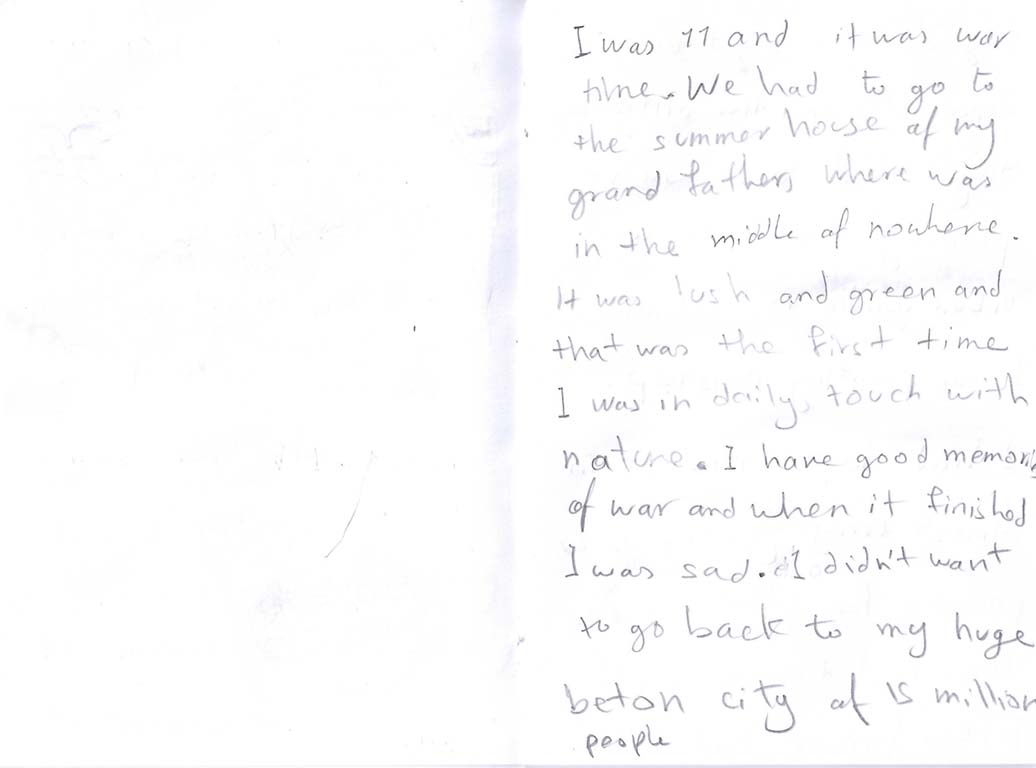 I was 11 and it was war
time. We had to go to
the summer house of my
grand fathers where was
in the middle of nowhere.
It was lush and green and
that was the first time
I was in daily touch with
nature. I have good memoris
of war and when it finished
I was sad. I didn't want
to go back to my huge
beton city of 15 million
people